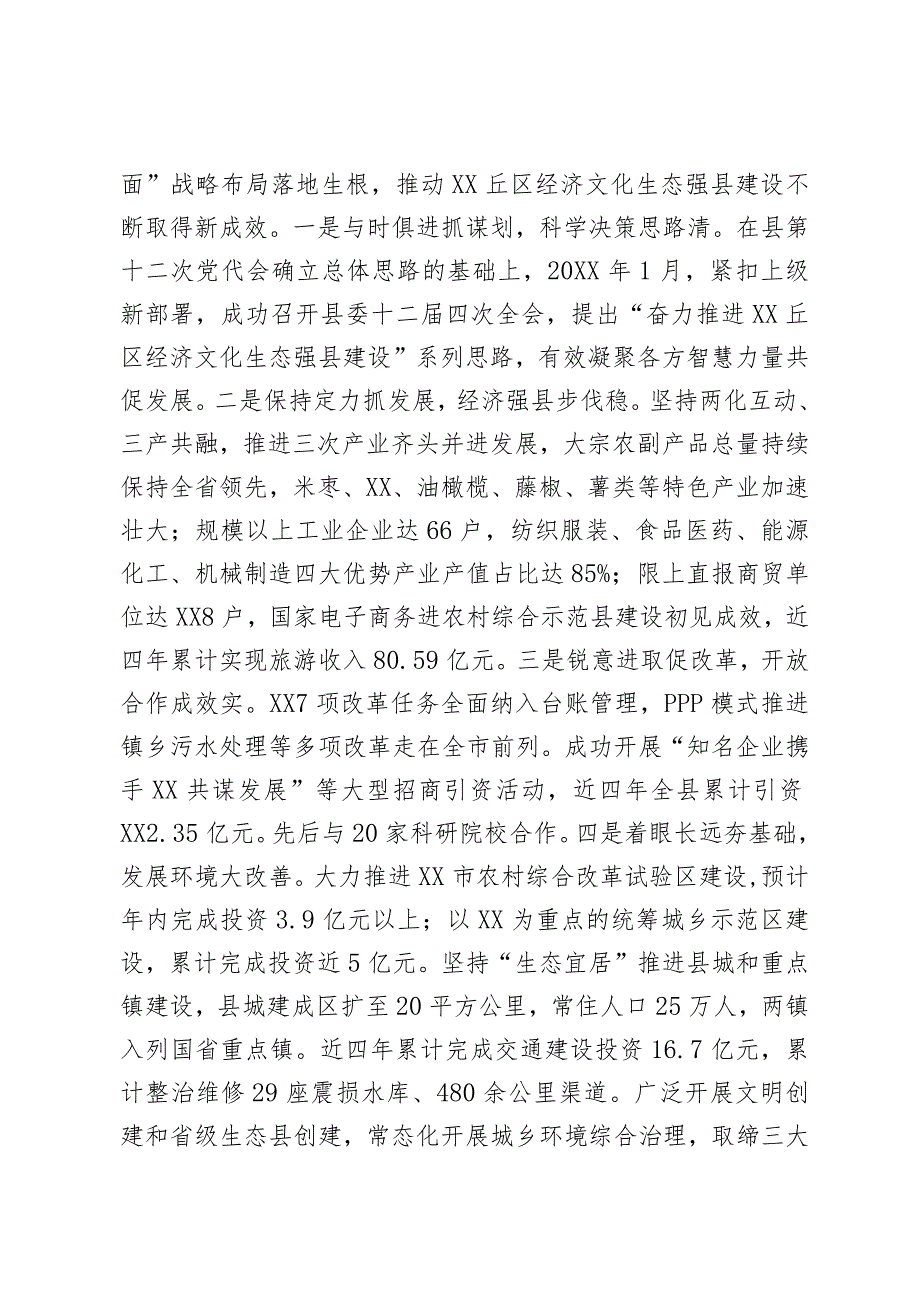 面”战略布局落地生根，推动 XX 丘区经济文化生态强县建设不
断取得新成效。一是与时俱进抓谋划，科学决策思路清。在县第
十二次党代会确立总体思路的基础上，20XX 年 1 月，紧扣上级
新部署，成功召开县委十二届四次全会，提出“奋力推进 XX 丘
区经济文化生态强县建设”系列思路，有效凝聚各方智慧力量共
促发展。二是保持定力抓发展，经济强县步伐稳。坚持两化互动、
三产共融，推进三次产业齐头并进发展，大宗农副产品总量持续
保持全省领先，米枣、XX、油橄榄、藤椒、薯类等特色产业加速
壮大；规模以上工业企业达 66 户，纺织服装、食品医药、能源
化工、机械制造四大优势产业产值占比达 85%；限上直报商贸单
位达 XX8 户，国家电子商务进农村综合示范县建设初见成效，近
四年累计实现旅游收入 80.59 亿元。三是锐意进取促改革，开放
合作成效实。XX7 项改革任务全面纳入台账管理，PPP 模式推进
镇乡污水处理等多项改革走在全市前列。成功开展“知名企业携
手 XX 共谋发展”等大型招商引资活动，近四年全县累计引资
XX2.35 亿元。先后与 20 家科研院校合作。四是着眼长远夯基础，
发展环境大改善。大力推进 XX 市农村综合改革试验区建设,预计
年内完成投资 3.9 亿元以上；以 XX 为重点的统筹城乡示范区建
设，累计完成投资近 5 亿元。坚持“生态宜居”推进县城和重点
镇建设，县城建成区扩至 20 平方公里，常住人口 25 万人，两镇
入列国省重点镇。近四年累计完成交通建设投资 16.7 亿元，累
计整治维修 29 座震损水库、480 余公里渠道。广泛开展文明创
建和省级生态县创建，常态化开展城乡环境综合治理，取缔三大